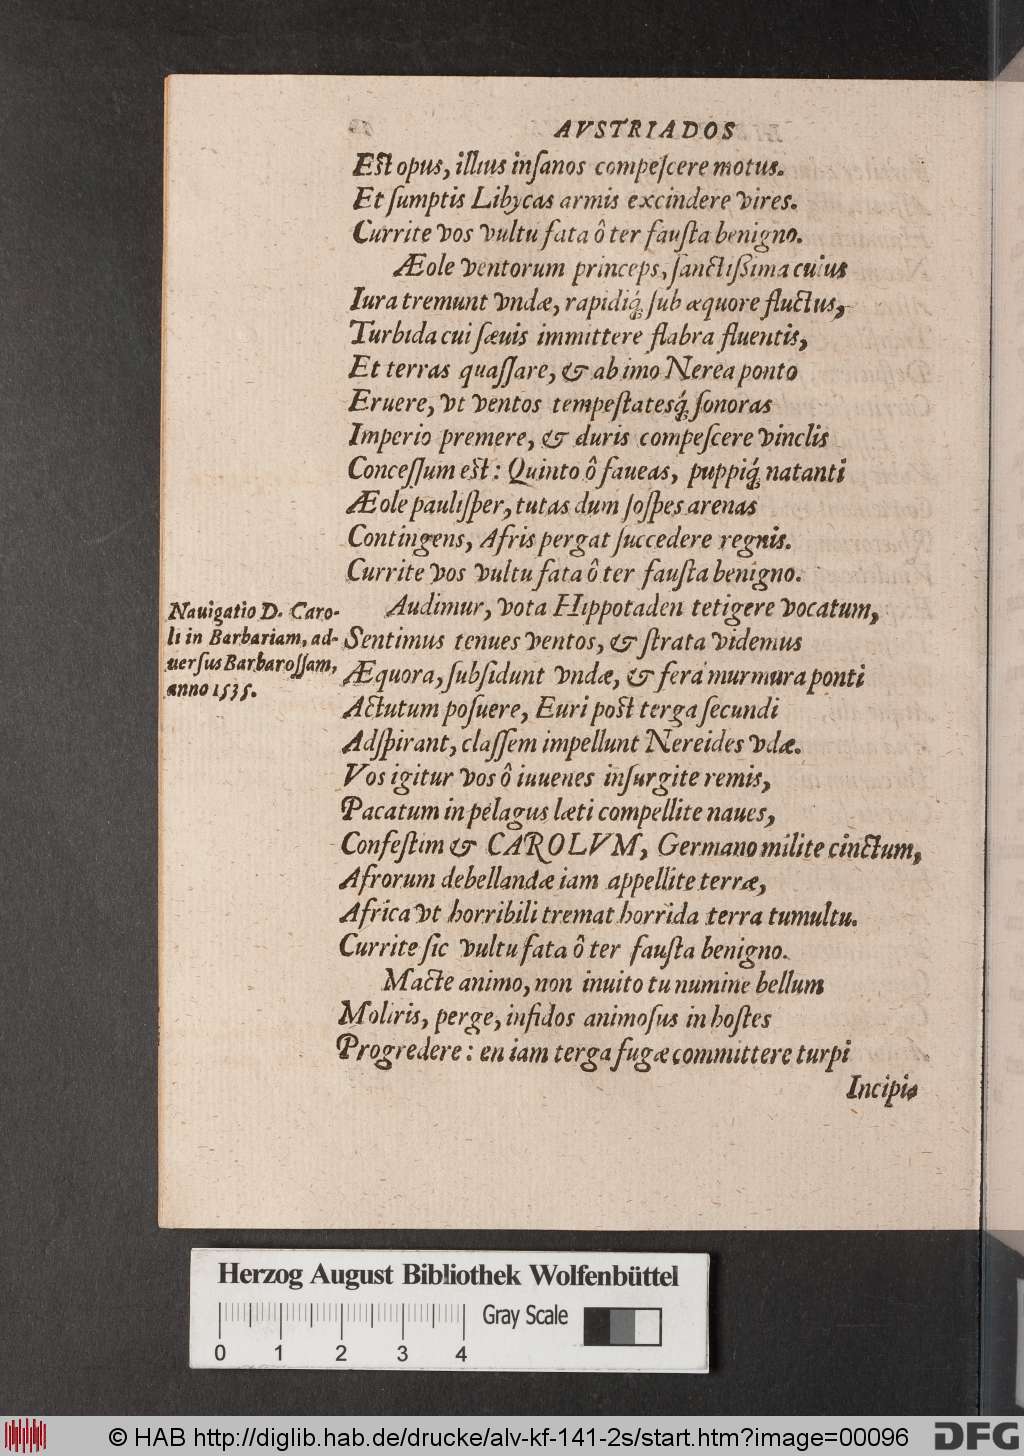 AVSTRIADOS
Est opus, illius inſanos compeſcere motus.
Et ſumptis Libycas armis excindere vires.
Currite vos vultu fata ô ter fauſta benigno.
Æole ventorum princeps, ſanctiſſima cuius
Iura tremunt vndæ, rapidiq́; ſub æquore fluctus,
Turbida cui ſæuis immittere flabra fluentis,
Et terras quaſſare, & ab imo Nerea ponto
Eruere, vt ventos tempeſtatesq́; ſonoras
Imperio premere, & duris compeſcere vinclis
Conceſſum est: Quinto ô faueas, puppiq́; natanti
Æole pauliſper, tutas dum ſoſpes arenas
Contingens, Afris pergat ſuccedere regnis.
Currite vos vultu fata ô ter fauſta benigno.
Nauigatio D. Caro-
li in Barbariam, ad-
uerſus Barbaroſſam,
anno 1535.
Audimur, vota Hippotaden tetigere vocatum,
Sentimus tenues ventos, & ſtrata videmus
Æquora, ſubſidunt vndæ, & fera murmura ponti
Actutum poſuere, Euri post terga ſecundi
Adſpirant, claſſem impellunt Nereides vdæ.
Vos igitur vos ô iuuenes inſurgite remis,
Pacatum in pelagus læti compellite naues,
Confeſtim & CAROLVM, Germano milite cinctum,
Afrorum debellandæ iam appellite terræ,
Africa vt horribili tremat horrida terra tumultu.
Currite ſic vultu fata ô ter fauſta benigno.
Macte animo, non inuito tu numine bellum
Moliris, perge, infidos animoſus in hoſtes
Progredere: en iam terga fugæ committere turpi
Incipis
Herzog August Bibliothek Wolfenbüttel
Gray Scale
0 1 2 3 4
© HAB http://diglib.hab.de/drucke/alv-kf-141-2s/start.htm?image=00096
DFG